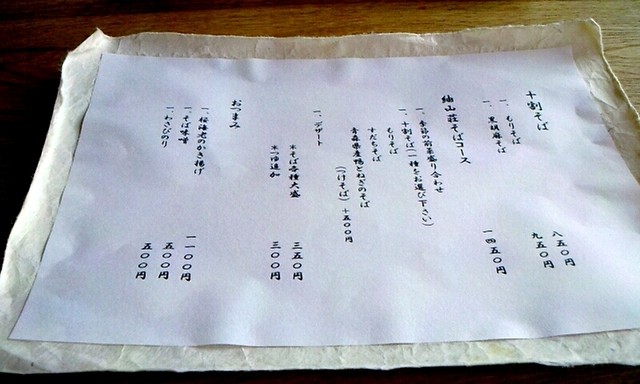 十割そば
一、もりそば 八五〇円
一、黒胡麻そば 九五〇円
紬山荘そばコース 一四五〇円
一、季節の前菜盛り合わせ
一、十割そば(一種をお選び下さい)
もりそば
すだちそば
青森県産鴨とねぎのそば
(つけそば)+五〇〇円
一、デザート
*そば各種大盛 三五〇円
*つゆ追加 三〇〇円
おつまみ
一、桜海老のかき揚げ 一一〇〇円
一、そば味噌 五〇〇円
一、わさびのり 五〇〇円